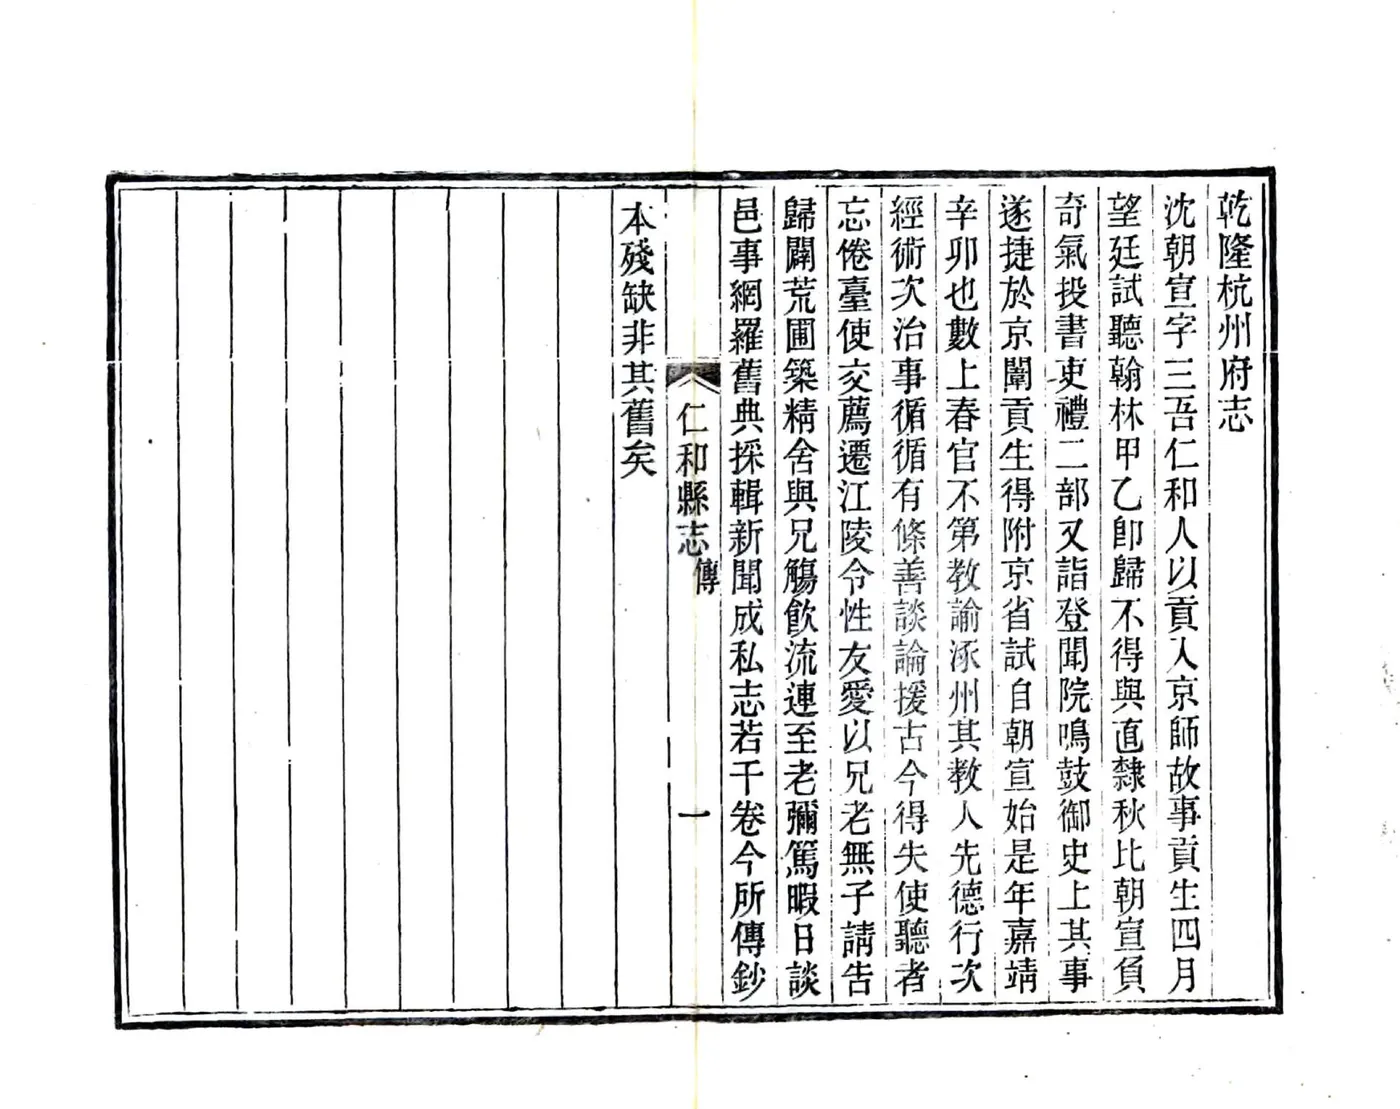 乾隆杭州府志
沈朝宣字三吾仁和人以貢入京師故事貢生四月
望廷試聽翰林甲乙卽歸不得與直隸秋比朝宣負
奇氣投書吏禮二部又詣登聞院鳴鼓御史上其事
遂捷於京闈貢生得附京省試自朝宣始是年嘉靖
辛卯也數上春官不第教諭涿州其教人先德行次
經術次治事循循有條善談論援古今得失使聽者
忘倦臺使交薦遷江陵令性友愛以兄老無子請告
歸闢荒圃築精舍與兄觴飲流連至老彌篤暇日談
邑事網羅舊典採輯新聞成私志若干卷今所傳鈔
仁和縣志 傳 一
本殘缺非其舊矣